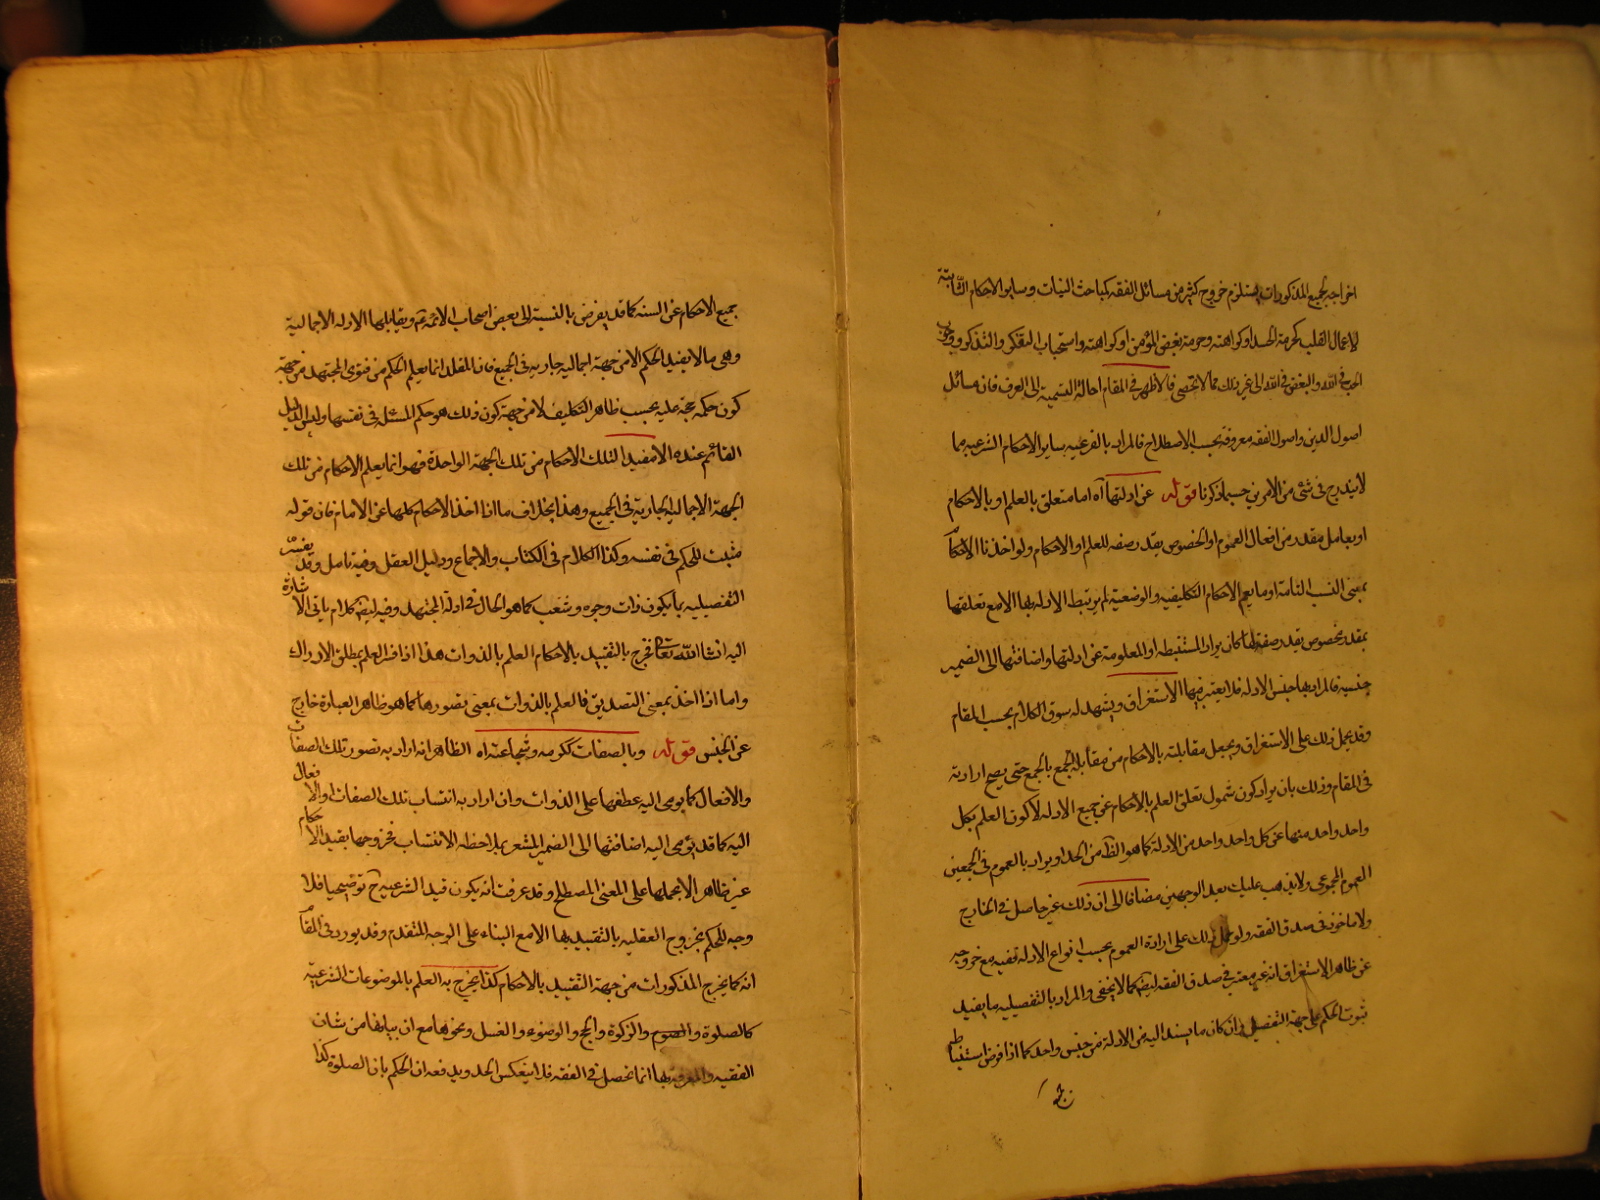 اخراجه لجميع المذكورات يستلزم خروج كثير من مسائل الفقه كمباحث النيات وساير الاحكام الثابتة
لاعمال القلب كحرمة الحسد او كراهته وحرمة بغض المؤمن او كراهته واستحباب التفكر والتذكر ووجوب
الحب في الله والبغض في الله الى غير ذلك مما لا تحصى فالاظهر في المقام احالة التسمية الى العرف فان مسائل
اصول الدين واصول الفقه معروفة بحسب الاصطلاح فالمراد بالفرعيه ساير الاحكام الشرعيه مما
لا يندرج في شئ من الامرين حسبما ذكرنا قوله عن ادلتها آه اما متعلق بالعلم او بالاحكام
او بعامل مقدر من افعال العموم او الخصوص بقدر صفه للعلم او الاحكام ولو اخذنا الاحكام
بمعنى النسب التامة او ما يعم الاحكام التكليفيه والوضعية لم يرتبط الادله بها الا مع تعلقها
بمقدر مخصوص يقدر صفة لها كان يراد المستنبطه او المعلومة عن ادلتها واضافتها الى الضمير
جنسية فالمراد بها جنس الادله فلا يعتبر فيها الاستغراق ويشهد له سوق الكلام بحسب المقام
وقد يحمل ذلك على الاستغراق ويجعل مقابلته بالاحكام من مقابلة الجمع بالجمع حتى يصح ارادته
في المقام وذلك بان يراد كون شمول تعلق العلم بالاحكام عن جميع الادله لا كون العلم بكل
واحد واحد منها عن كل واحد واحد من الادلة كما هو الظ من الحد او يراد بالعموم في الجمعين
العموم المجموعى ولا يذهب عليك بعد الوجهين مضافا الى ان ذلك غير حاصل في الخارج
ولا ماخوذ في صدق الفقه ولو حمل ذلك على ارادة العموم بحسب انواع الادله ففيه مع خروجه
عن ظاهر الاستغراق انه غير معتبر في صدق الفقه ايضا كما لا يخفى والمراد بالتفصيليه ما يفيد
ثبوت الحكم على جهة التفصيل وان كان ما يستند اليه من الادلة من جنس واحد كما اذا فرض استنباط
جميع الاحكام عن السنه كما قد يفرض بالنسبة الى بعض اصحاب الائمة ع ويقابلها الادله الاجماليه
وهى ما لا يفيد الحكم الا من جهة اجماليه جاريه في الجميع فان المقلد انما يعلم الحكم من فتوى المجتهد من جهة
كون حكمه حجة عليه بحسب ظاهر التكليف لا من جهة كون ذلك هو حكم المسئله في نفسها وليس الدليل
القائم عنده الا مفيدا لتلك الاحكام من تلك الجهة الواحدة فهو انما يعلم الاحكام من تلك
الجهة الاجماليه الجارية في الجميع وهذا بخلاف ما اذا اخذ الاحكام كلها عن الامام فان قوله
مثبت للحكم في نفسه وكذا الكلام في الكتاب والاجماع ودليل العقل وفيه تامل وقد يفسر
التفصيليه بما يكون ذات وجوه وشعب كما هو الحال في ادلة المجتهد وفيه ايضا كلام ياتى الاشارة
اليه انشا الله تعالى فخرج بالتقييد بالاحكام العلم بالذوات هذا اذا فسر العلم بمطلق الادراك
واما اذا اخذ بمعنى التصديق فالعلم بالذوات بمعنى تصورها كما هو ظاهر العبارة خارج
عن الجنس قوله وبالصفات ككرمه وشجاعته اه الظاهر انه اراد به تصور تلك الصفات
والافعال كما يومى اليه عطفها على الذوات وان اراد به انتساب تلك الصفات او الافعال
اليه كما قد يؤمى اليه اضافتها الى الضمير المشعر بملاحظه الانتساب فخروجها بقيد الاحكام
غير ظاهر الا بحملها على المعنى المصطلح وقد عرفت انه يكون قيد الشرعيه ح توضيحيا فلا
وجه للحكم بخروج العقليه بالتقييد بها الا مع البناء على الوجه المتقدم وقد يورد في المقام
انه كما يخرج المذكورات من جهة التقييد بالاحكام كذا يخرج به العلم بالموضوعات الشرعيه
كالصلوة والصوم والزكوة والحج والوضوء والغسل ونحوها مع ان بيانها من شان
الفقيه والمعرفة بها انما تحصل في الفقه فلا ينعكس الحد ويدفعه ان الحكم بان الصلوة كذا